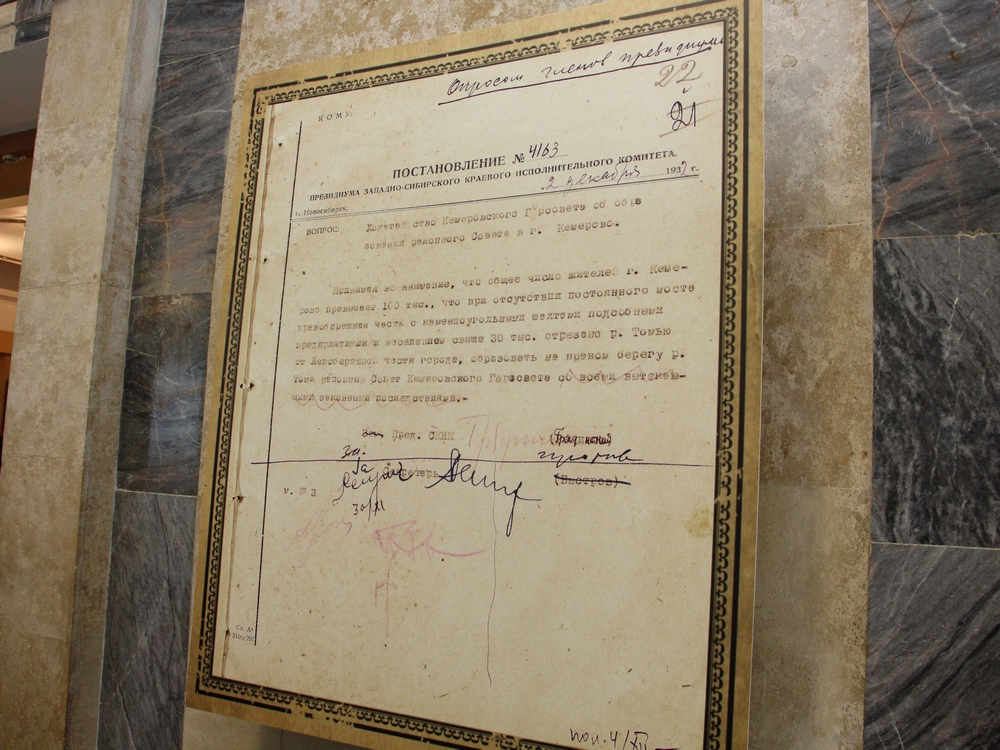 Опросом членов президиума
22
21
КОМУ
ПОСТАНОВЛЕНИЕ № 4163
ПРЕЗИДИУМА ЗАПАДНО-СИБИРСКОГО КРАЕВОГО ИСПОЛНИТЕЛЬНОГО КОМИТЕТА.
г. Новосибирск, 2 декабря 193 г.
ВОПРОС: Ходатайство Кемеровского Горсовета об обра
зовании районного Совета в г. Кемерово.
Принимая во внимание, что общее число жителей г. Кеме-
рово превышает 100 тыс., что при отсутствии постоянного моста
правобережная часть с каменноугольными шахтами подсобными
предприятиями и населением свыше 30 тыс. отрезана р. Томью
от левобережн. части города, образовать на правом берегу р.
Томи районный Совет Кемеровского Горсовета со всеми вытекаю-
щими законными последствиями.-
Зам. Пред. (Грядинский)
За.
Секретарь (Быстров)
м. № 3
30/XI
Сл. №
пол. 4/XII